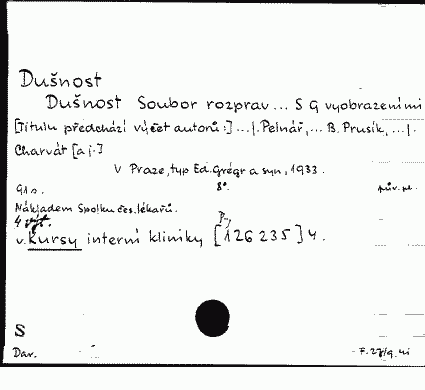 Dušnost
Dušnost Soubor rozprav... S 9 vyobrazeními
[Titulu předchází výčet autorů:] ...J. Pelnář,... B. Prusík, ...J.
Charvát [a j.]
V Praze, typ Ed. Grégr a syn, 1933.
91 s. 8°. pův. pl.
Nákladem Spolku čes. lékařů.
4 výt.
v. Kursy interní kliniky [126235] 4.
S
Dar.